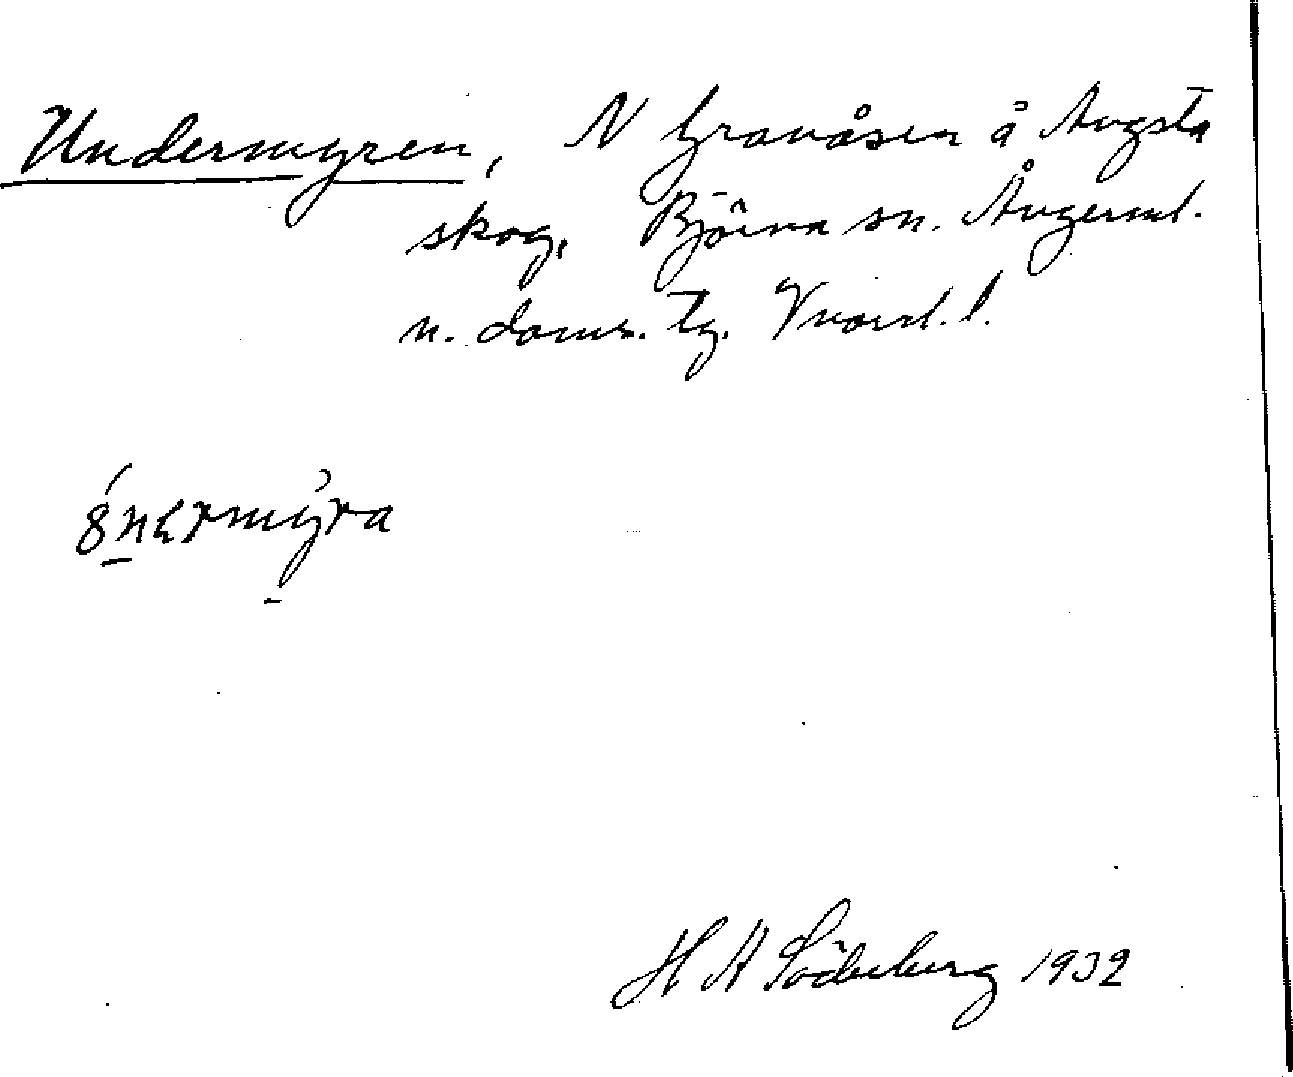 Undermyren, N Granåsen å Avgsta
skog, Björna sn. Ångerml.
n. doms. tg. Vnorrl. l.
H A Söderberg 1932